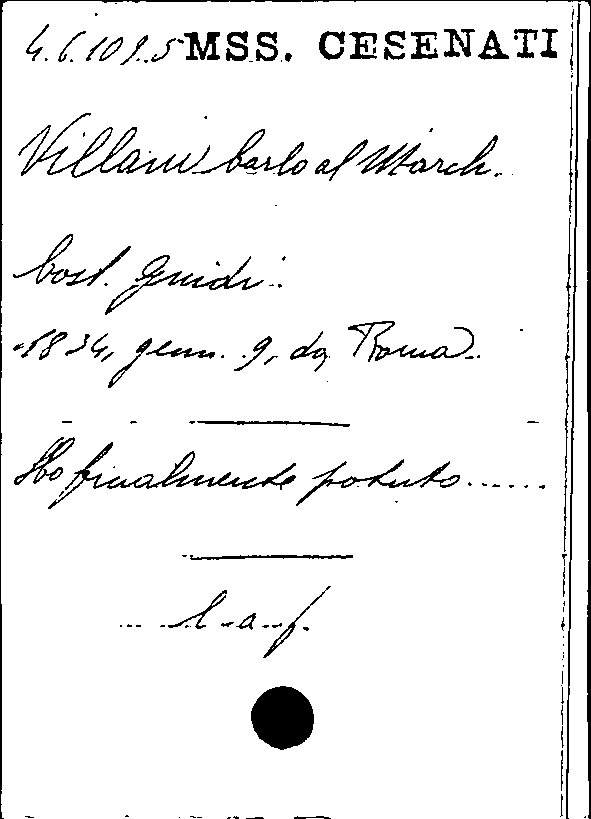 4.6.109.5 MSS. CESENATI
Villani Carlo al March.
Cost. Guidi.
1834, genn. 9, da Roma.
Ho finalmente potuto......
l. a. f.